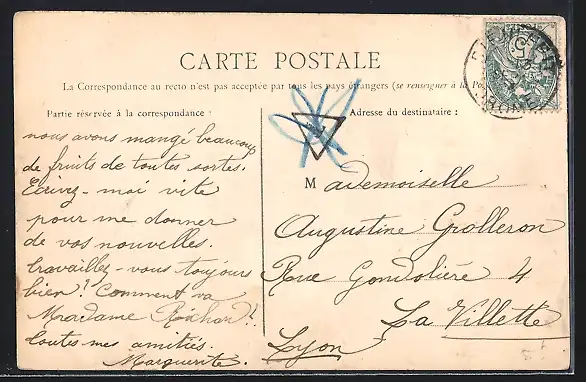 CARTE POSTALE
La Correspondance au recto n'est pas acceptée par tous les pays étrangers (se renseigner à la Po
Partie réservée à la correspondance :
Adresse du destinataire :
nous avons mangé beaucoup
de fruits de toutes sortes.
Écrivez-moi vite
pour me donner
de vos nouvelles.
travaillez-vous toujours
bien? Comment va
Madame
toutes mes amitiés.
Marguerite.
Mademoiselle
Augustine Grolleron
Rue Gondolière 4
La Villette
Lyon
5
RHONE